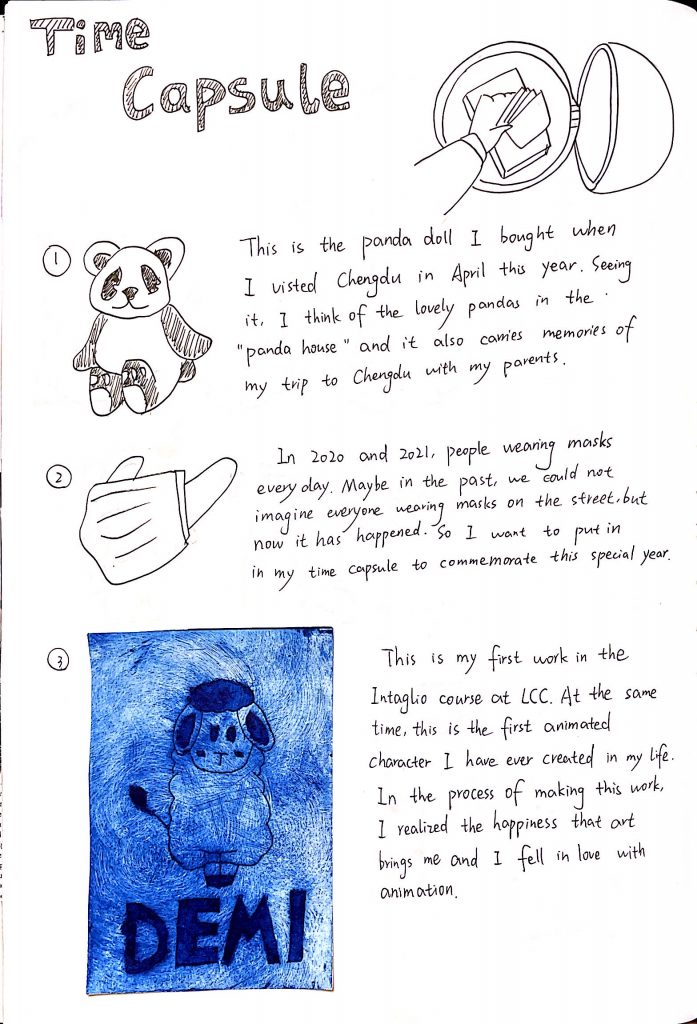 Time
Capsule
1
This is the panda doll I bought when
I visted Chengdu in April this year. Seeing
it, I think of the lovely pandas in the
"panda house" and it also carries memories of
my trip to Chengdu with my parents.
2
In 2020 and 2021, people wearing masks
every day. Maybe in the past, we could not
imagine everyone wearing masks on the street, but
now it has happened. So I want to put in
in my time capsule to commemorate this special year.
3
This is my first work in the
Intaglio course at LCC. At the same
time, this is the first animated
character I have ever created in my life.
In the process of making this work,
I realized the happiness that art
brings me and I fell in love with
animation.
DEMI